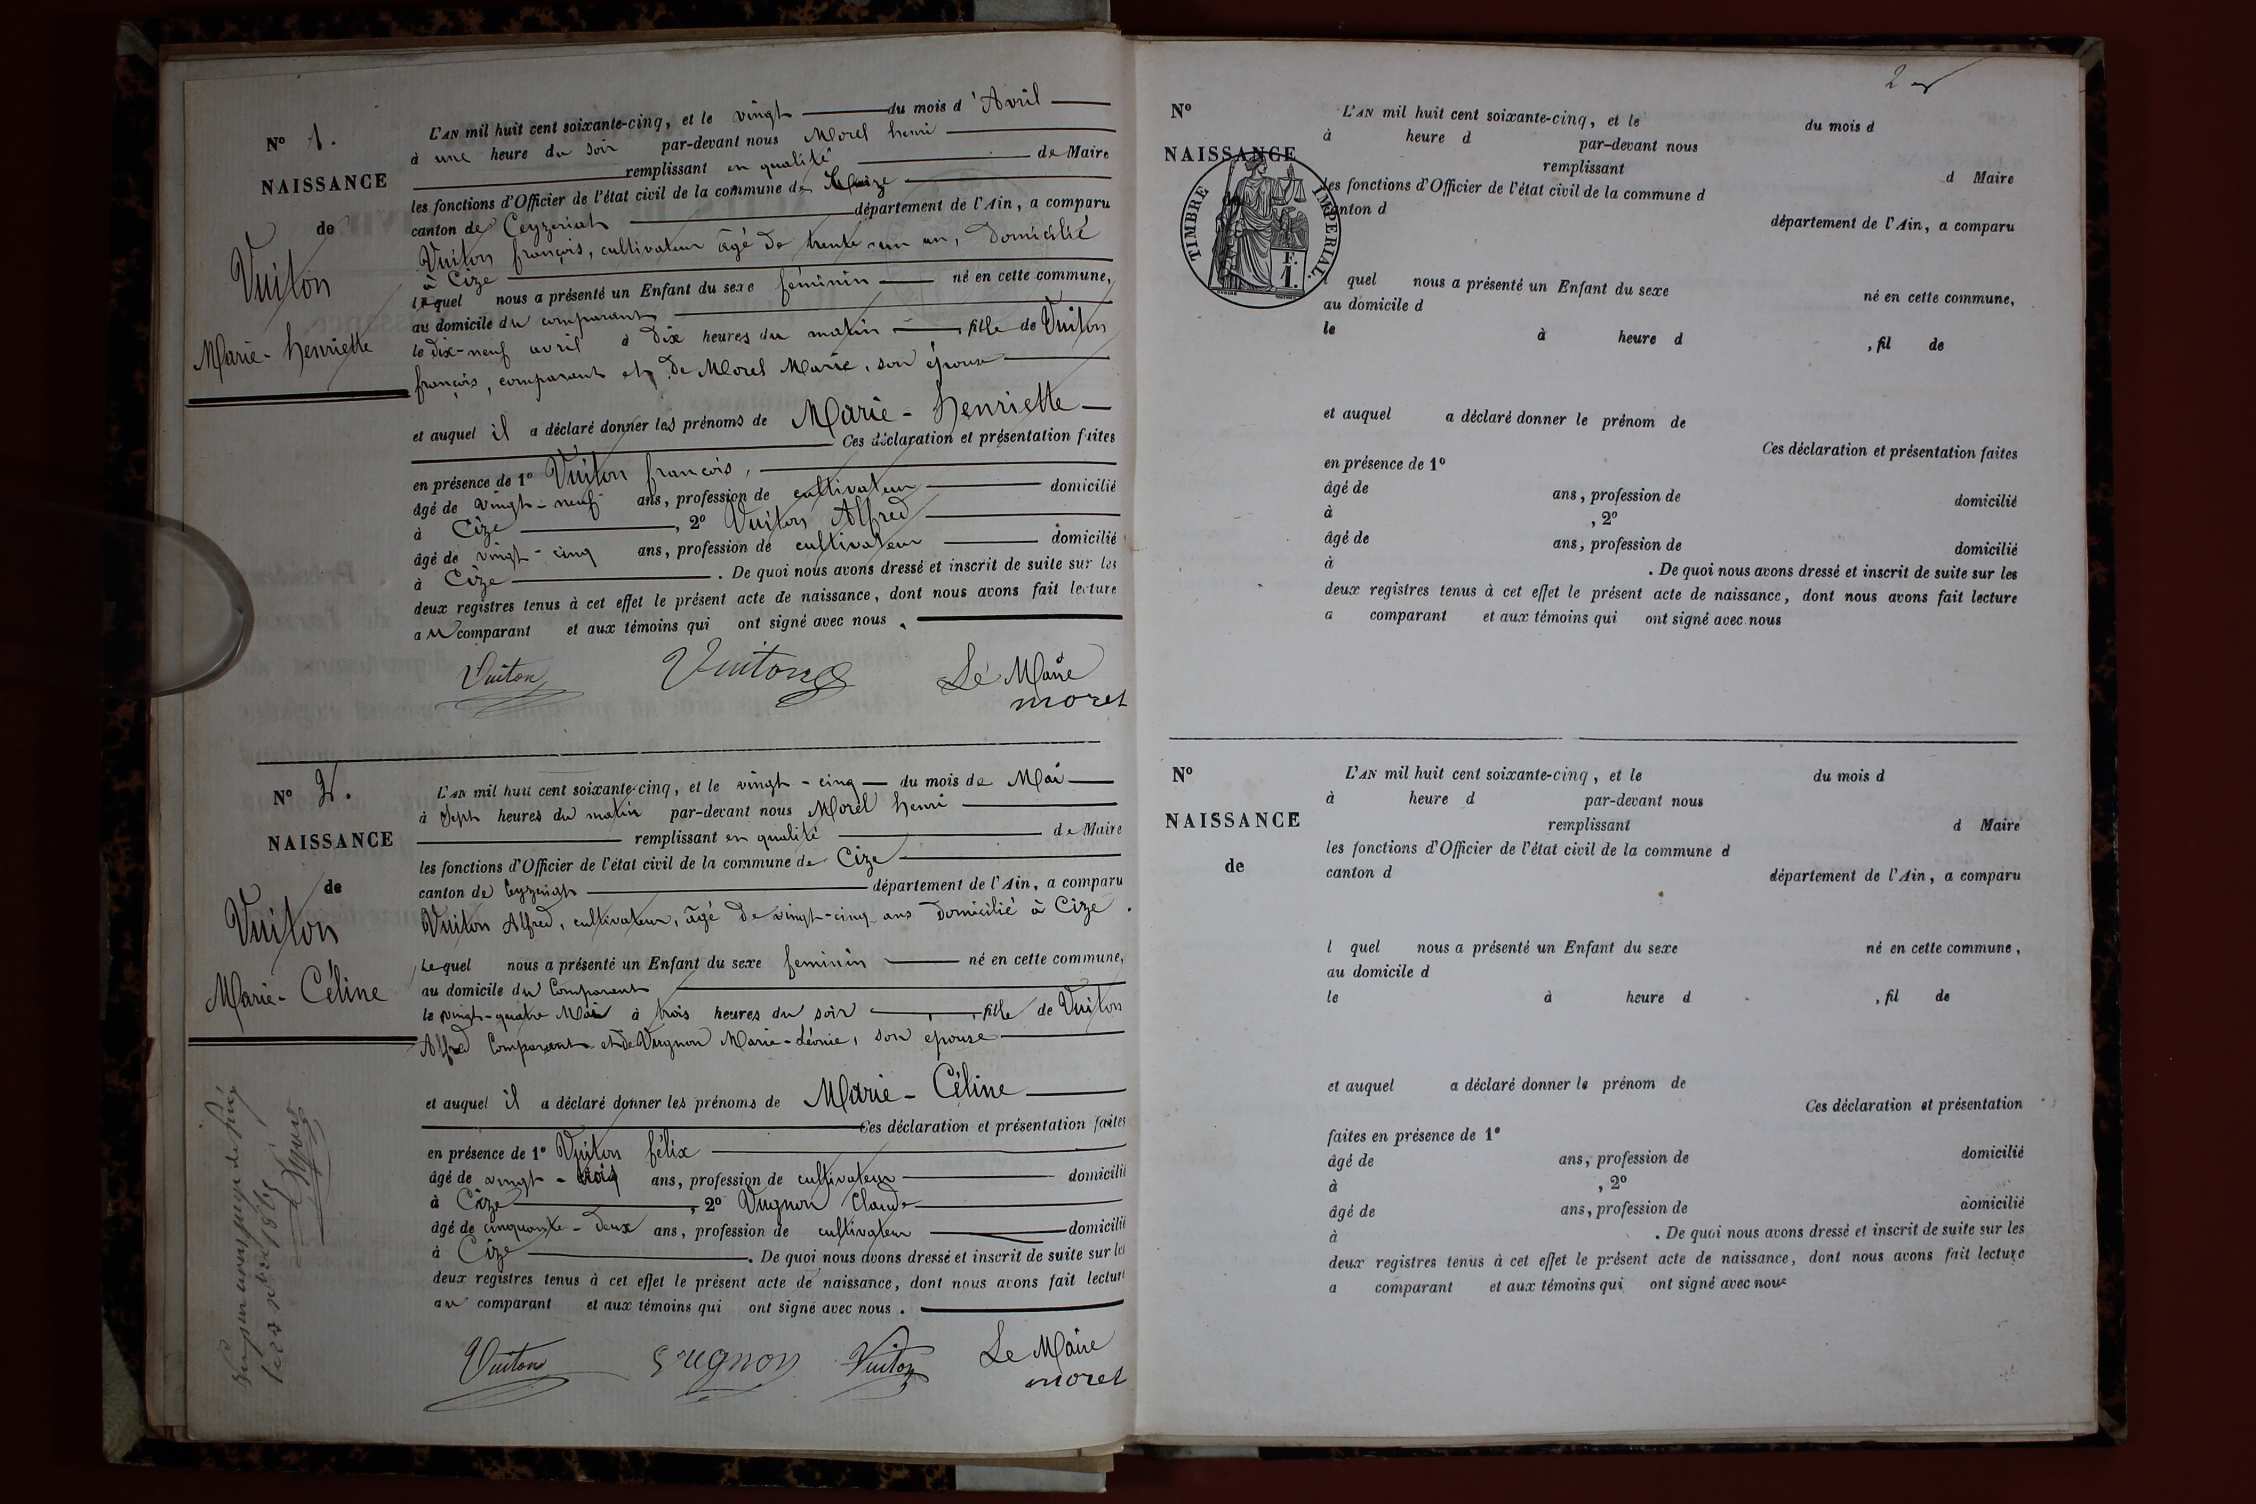 N° 1.
NAISSANCE
de
Vuiton
Marie-henriette
L'AN mil huit cent soixante-cinq, et le vingt du mois d'Avril
à une heure du soir par-devant nous Morel henri
remplissant en qualité de Maire
les fonctions d'Officier de l'état civil de la commune de Cize
canton de Ceyzeriat département de l'Ain, a comparu
Vuiton françois, cultivateur âgé de trente-un an, domicilié
à Cize
lequel nous a présenté un Enfant du sexe féminin né en cette commune,
au domicile du comparant
le dix-neuf avril à dix heures du matin, fille de Vuiton
françois, comparant et de Morel Marie, son épouse
et auquel il a déclaré donner les prénoms de Marie-henriette
Ces déclaration et présentation faites
en présence de 1° Vuiton françois,
âgé de vingt-neuf ans, profession de cultivateur domicilié
à Cize, 2° Vuiton Alfred
âgé de vingt-cinq ans, profession de cultivateur domicilié
à Cize. De quoi nous avons dressé et inscrit de suite sur les
deux registres tenus à cet effet le présent acte de naissance, dont nous avons fait lecture
au comparant et aux témoins qui ont signé avec nous.
Vuiton Vuiton Le Maire
morel
N° 2.
NAISSANCE
de
Vuiton
Marie-Céline
L'AN mil huit cent soixante-cinq, et le vingt-cinq du mois de Mai
à Sept heures du matin par-devant nous Morel henri
remplissant en qualité de Maire
les fonctions d'Officier de l'état civil de la commune de Cize
canton de Ceyzeriat département de l'Ain, a comparu
Vuiton Alfred, cultivateur, âgé de vingt-cinq ans domicilié à Cize.
Lequel nous a présenté un Enfant du sexe feminin né en cette commune,
au domicile du Comparant
le vingt-quatre Mai à trois heures du soir, fille de Vuiton
Alfred Comparant et de Vugnon Marie-Léonie, son epouse
et auquel il a déclaré donner les prénoms de Marie-Céline
Ces déclaration et présentation faites
en présence de 1° Vuiton félix
âgé de vingt-trois ans, profession de cultivateur domicilié
à Cize, 2° Vugnon Claude
âgé de cinquante-deux ans, profession de cultivateur domicilié
à Cize. De quoi nous avons dressé et inscrit de suite sur les
deux registres tenus à cet effet le présent acte de naissance, dont nous avons fait lecture
au comparant et aux témoins qui ont signé avec nous.
Vuiton Vuiton Le Maire
morel
2
N°
NAISSANCE
de
TIMBRE IMPERIAL.
F.
1.
L'AN mil huit cent soixante-cinq, et le du mois d
à heure d par-devant nous
remplissant d Maire
les fonctions d'Officier de l'état civil de la commune d
canton d
département de l'Ain, a comparu
l quel nous a présenté un Enfant du sexe né en cette commune,
au domicile d
le à heure d , fil de
et auquel a déclaré donner le prénom de
Ces déclaration et présentation faites
en présence de 1°
âgé de ans, profession de domicilié
à , 2°
âgé de ans, profession de domicilié
à . De quoi nous avons dressé et inscrit de suite sur les
deux registres tenus à cet effet le présent acte de naissance, dont nous avons fait lecture
a comparant et aux témoins qui ont signé avec nous
N°
NAISSANCE
de
L'AN mil huit cent soixante-cinq, et le du mois d
à heure d par-devant nous
remplissant d Maire
les fonctions d'Officier de l'état civil de la commune d
canton d département de l'Ain, a comparu
l quel nous a présenté un Enfant du sexe né en cette commune,
au domicile d
le à heure d , fil de
et auquel a déclaré donner le prénom de
Ces déclaration et présentation
faites en présence de 1°
âgé de ans, profession de domicilié
à , 2°
âgé de ans, profession de domicilié
à . De quoi nous avons dressé et inscrit de suite sur les
deux registres tenus à cet effet le présent acte de naissance, dont nous avons fait lecture
a comparant et aux témoins qui ont signé avec nous